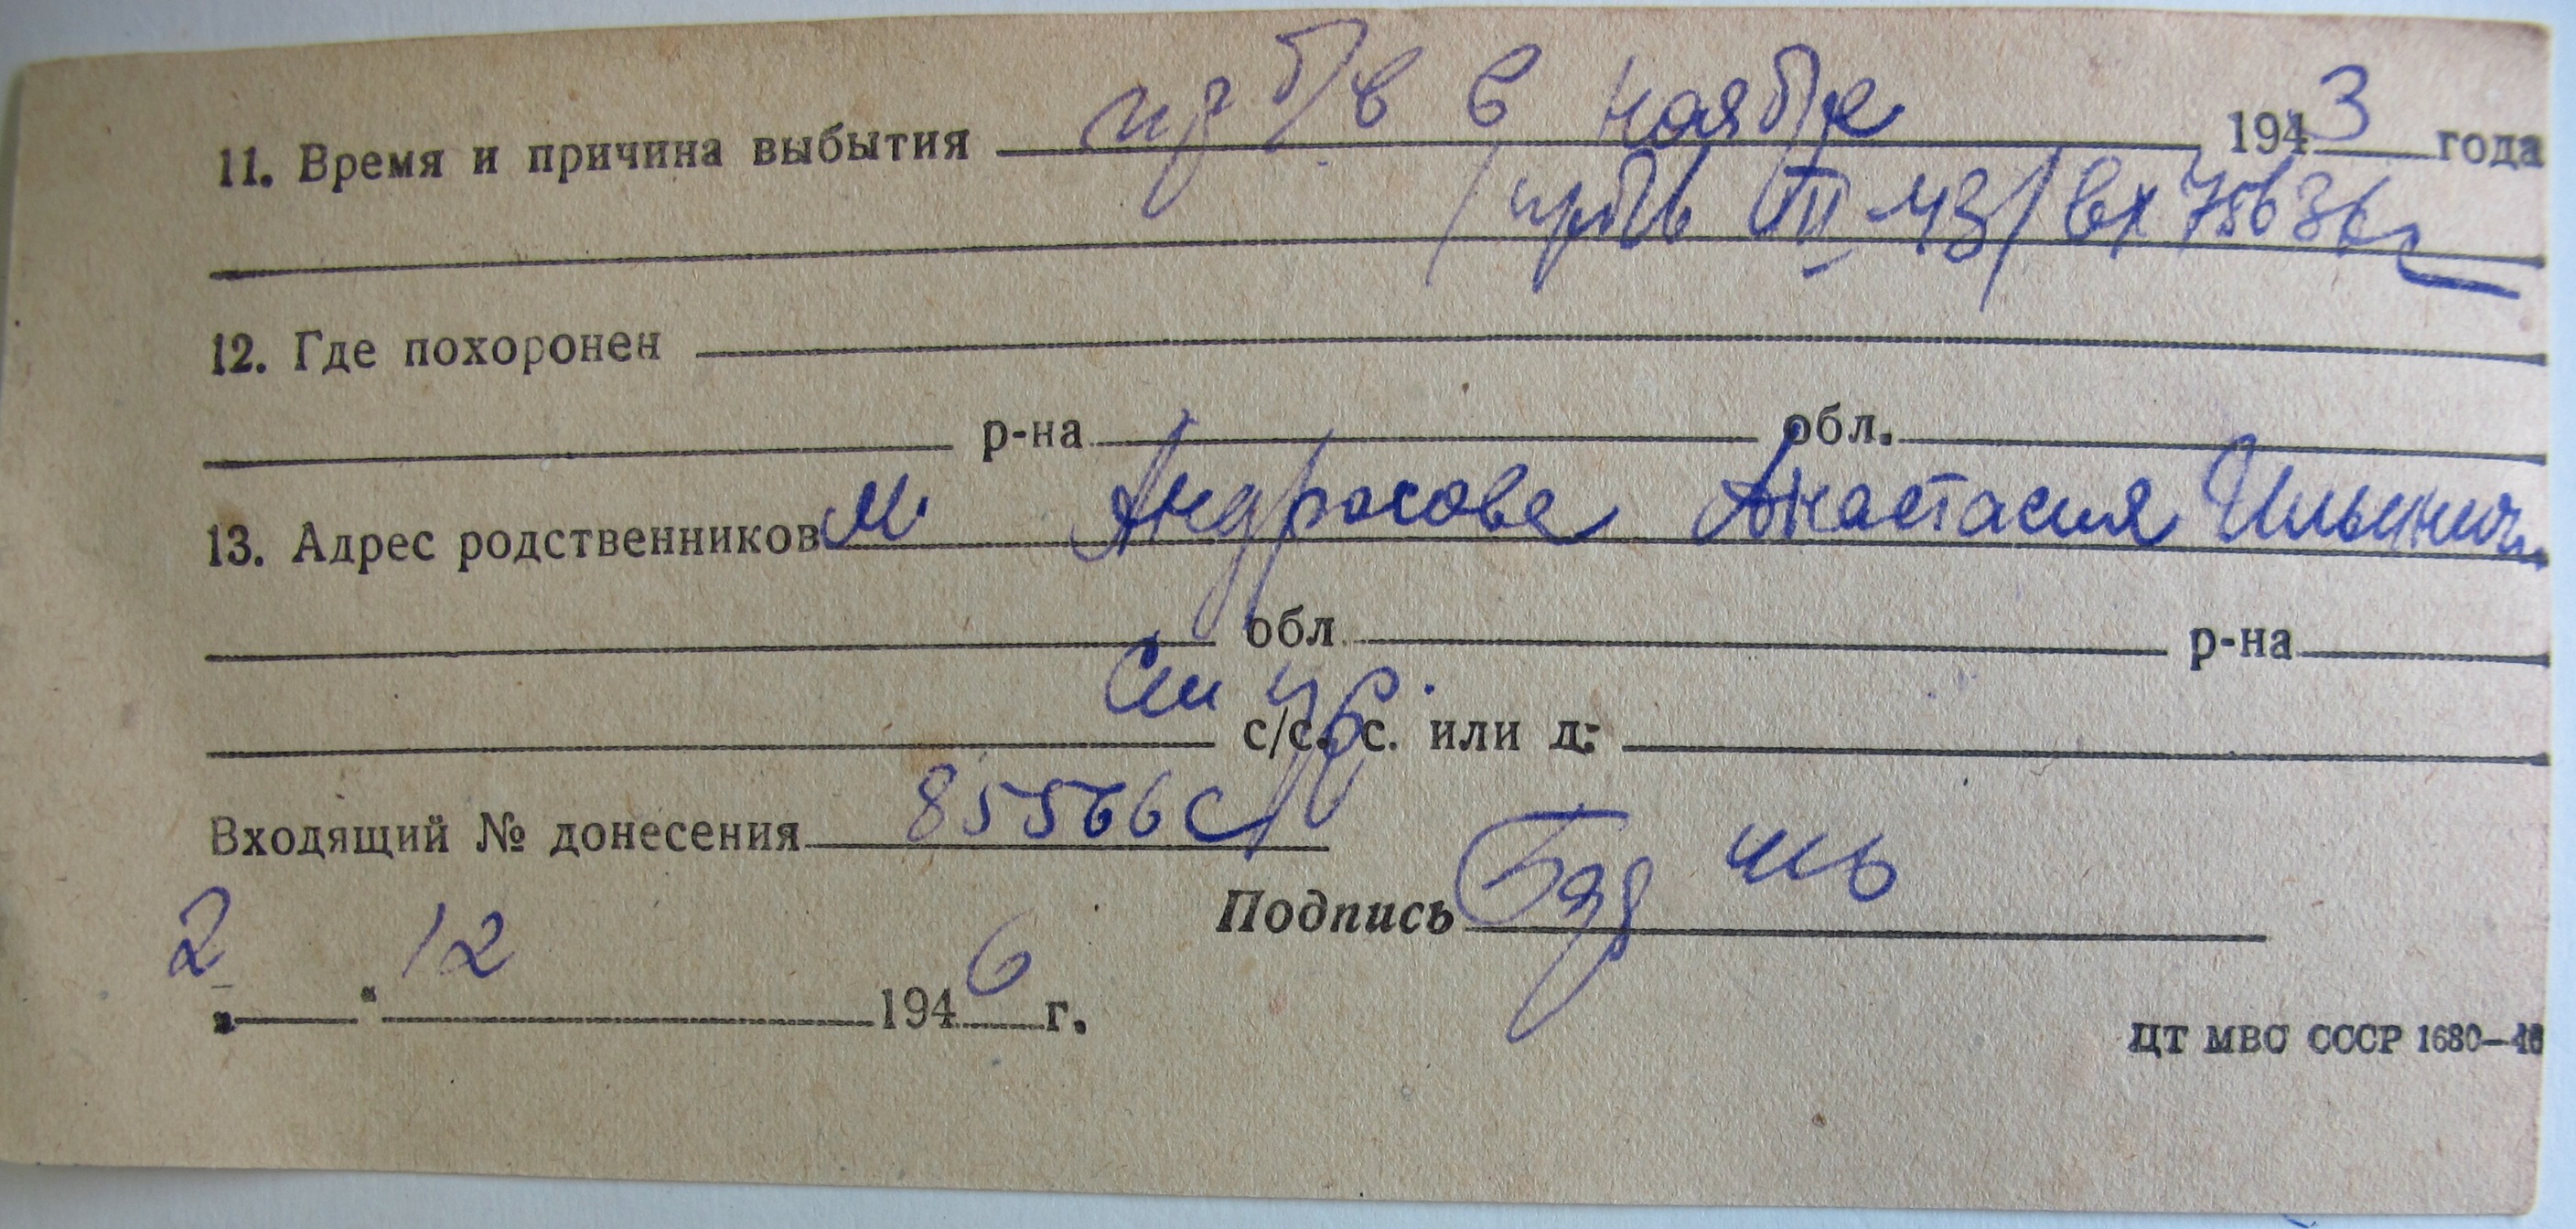 11. Время и причина выбытия пр б/в в ноябре 1943 года
VII 43/ вх 75636с
12. Где похоронен
р-на обл.
13. Адрес родственников М. Андросова Анастасия Ильинич
обл р-на
См №6.
с/с. с. или д:
Входящий № донесения 85566с
Подпись
2 12 1946 г.
ЦТ МВС СССР 1680—46